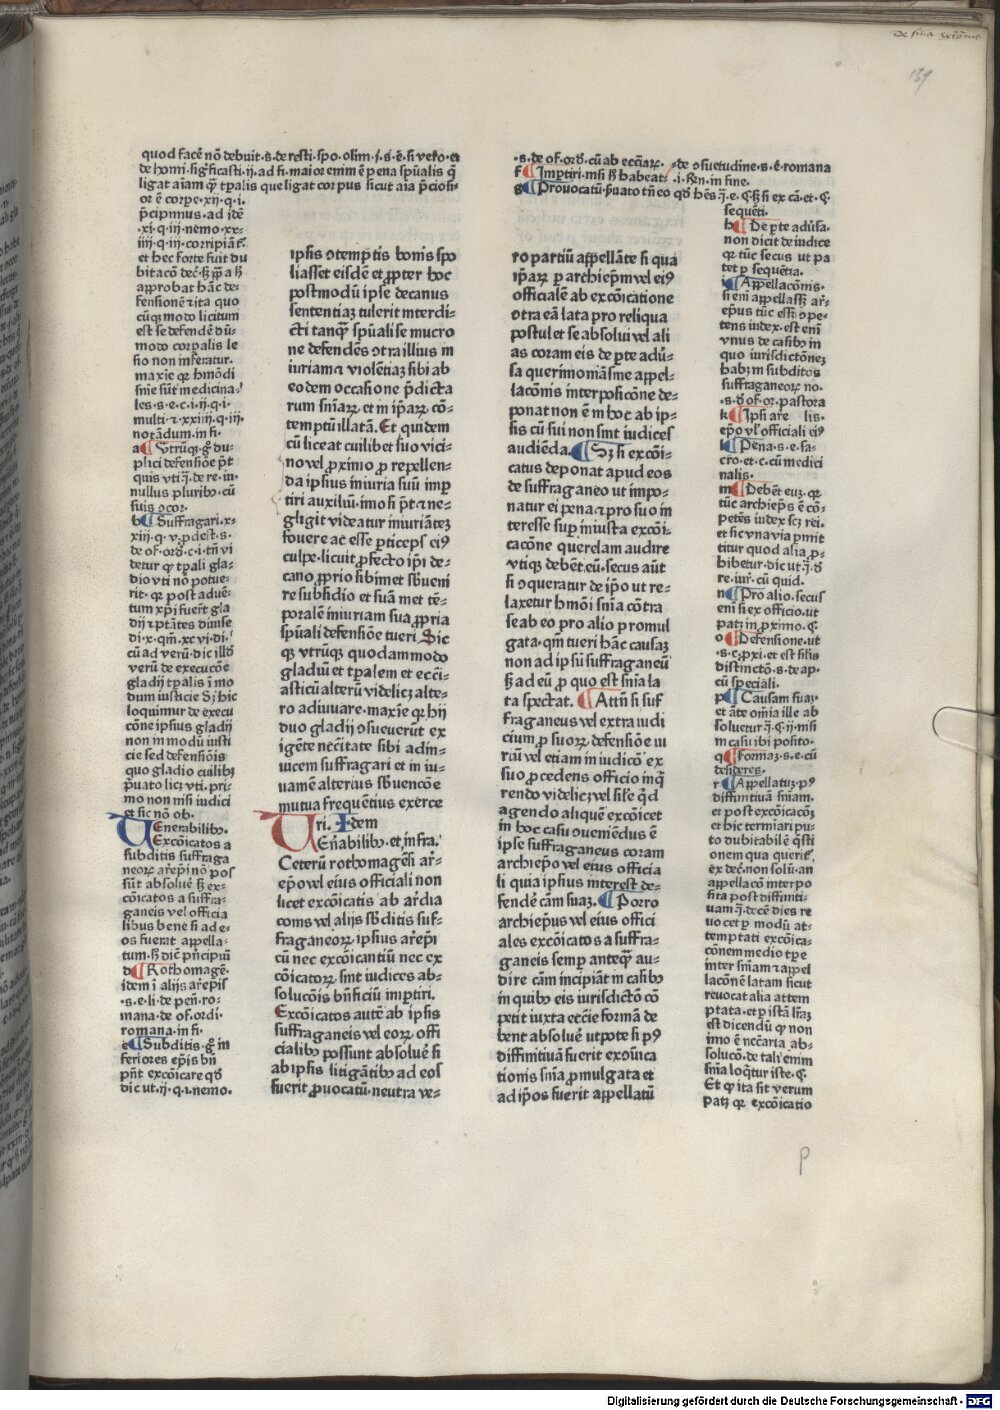 De sn̄ia excōmu.
139
quod facē nō debuit·s̄·de resti·spo·olim·j·s̄·ē·si vero·en
de homi·sigͥficasti·ij·ad fi·maior enim ē pena spūalis q̄
ligat aīam qꝫ tꝑalis que ligat corpus sicut aīa p̄ciosi-
or ē corꝑe·xij·q·i·
p̄cipimus·ad idē
·xi·q·iij·nemo·xx-
iiij·q·iij·corripiāt̄
et hec forte fuit du
bitacō dec̄·sꝫ ꝓꝑ a sꝫ
approbat hāc de-
fensionē ⁊ ita quo
cūqꝫ modo licitum
est se defendē dū-
modo corꝑalis le
sio non inferatur.
maxīe qꝛ hmōdi
sn̄ie sūt medicina-
les·s·e·c·i·ij·q·i·
multi·⁊·xxiiij·q·iij·
notādum·in fi.
a¶ Vtrūqꝫ·gͦ du-
plici defensiōe p̄t
quis vti·q̄·de re·in-
nullus pluribꝰ·cū
suis ↄcor·
b¶ Suffragari·x-
xiij·q·v·ꝓdest·s·
de of·ord̄·c·i·tn̄ vi
detur qꝫ tꝑali gla-
dio vti nō potue-
rit·qꝛ post aduē-
tum xp̄i fuerūt gla
dij ⁊ ptātes diuise
di·x·qm̄·xcvi·di·
cū ad verū·dic illd̄
verū de execucōe
gladij tꝑalis ī mo
dum iusticie Sꝫ hic
loquimur de execu
cōne ipsius gladij
non in modū iusti
cie sed defensiōis
quo gladio cuilibꝫ
p̄uato licꝫ vti·pri-
mo non nisi iudici
et sic nō ob·
VEnerabilibꝰ.
Excōicatos a
subditis suffraga
neorꝫ ar̄ep̄i nō pos
sūt absoluē sꝫ ex-
cōicatos a suffra-
ganeis vel officia
libus bene si ad e-
os fuerat appella-
tum·hꝫ dīc p̄ncipiū
d¶ Rothomagē·
idem ī alijs ar̄ep̄is
·s·e·li·de pen̄·ro-
mana·de of·ordi·
romana·in fi·
e¶ Subditis·gͦ in
feriores ep̄is bn̄
pn̄t excōicare qd̄
dic ut·ij·q·i·nemo.
ipsis ↄtemptis bonis spo
liasset eisdē et ꝓpter hoc
postmodū ipse decanus
sententiaꝫ tulerit interdi-
cti tanqꝫ spūali se mucro
ne defendēs ↄtra illius in
iuriam ⁊ violētiaꝫ sibi ab
eodem occasione p̄dicta
rum sn̄iaꝝ et in ip̄aꝝ cō-
temptū illatā. Et quidem
cū liceat cuilibet suo vici-
no vel ꝓximo ꝓ repellen-
da ipsius iniuria suū imꝑ
tiri auxiliū imo si p̄t ⁊ ne-
gligit videatur iniuriāteꝫ
fouere ac esse ꝑticeps eiꝰ
culpe·licuit ꝓfecto ip̄i de-
cano ꝓprio sibimet sb̄ueni
re subsidio et suā met tē-
poralē iniuriam sua ꝓpria
spūali defensiōe tueri Sic
qꝫ vtrūqꝫ quodammodo
gladiū et tꝑalem et ecc̄i-
asticū alterū videlicꝫ alte-
ro adiuuare·maxīe qꝫ hij
duo gladij ↄsueuerūt ex
igente nec̄itate sibi adin-
uicem suffragari et in iu-
uamē alterius sb̄uencōe
mutua frequētius exerce
ri. Idem
VEn̄abilibꝰ·et infra.
Ceterū rothomageñ ar̄-
ep̄o vel eius officiali non
licet excōicatis ab ar̄dia
coms vel alijs sb̄ditis suf-
fraganeorꝫ ipsius ar̄ep̄i
cū nec excōicantiū nec ex
cōicatorꝫ sint iudices ab-
solucōis bn̄ficiū imꝑtiri.
Excōicatos autē ab ipsis
suffraganeis vel eorꝫ offi
cialibꝰ possunt absoluē si
ab ipsis litigātibꝰ ad eos
fuerit ꝓuocatū·neutra ve-
·s·de of·ord̄·cū ab ecc̄iaꝝ·
f¶ Imꝑtiri·nisi hꝫ habeat
·de ↄsuetudine·s·ē·romana
·i·R̄n·in fine.
g¶ Prouocatū·p̄uato tn̄ eo qd̄ hēs·q̄·e·ꝯ hꝫ si ex cā·et·ꝯ
sequēti·
ro partiū appellāte si qua
ip̄aꝝ ꝑ archiep̄m vel eiꝰ
officialē ab excōicatione
ↄtra eā lata pro reliqua
postulet se absolui vel ali
as coram eis de ꝑte adū-
sa querimoniā sine appel-
lacōnis interposicōne de-
ponat non ē in hoc ab ip-
sis cū sui non sint iudices
audiēda. ¶ Sꝫ si excōi-
catus deponat apud eos
de suffraganeo ut impo-
natur ei pena ⁊ pro suo in
teresse suꝑ iniusta excōi-
cacōne querelam audire
vtiqꝫ debēt eū. secus aūt
si ↄqueratur de ip̄o ut re-
laxetur hmōi sn̄ia cōtra
se ab eo pro alio promul
gata·qm̄ tueri hāc causaꝫ
non ad ip̄sū suffraganeū
sꝫ ad eū ꝓ quo est sn̄ia la
ta spectat. ¶ Attn̄ si suf
fraganeus vel extra iudi
cium ꝓ suorꝫ defensiōe iu
riū vel etiam in iudicō ex
suo ꝓcedens officio inq̄
rendo videlicꝫ vel sil̄e q̄d
agendo aliquē excōicet
in hoc casu ↄueniēdus ē
ipse suffraganeus coram
archiep̄o vel eius officia
li quia ipsius interest de-
fendē cām suaꝫ. ¶ Porro
archiep̄us vel eius offici
ales excōicatos a suffra-
ganeis semꝑ anteqꝫ au-
dire cām incipiāt in casibꝰ
in quibꝰ eis iurisdictō cō
petit iuxta ecc̄ie formā de
bent absoluē utpote si pꝰ
diffinitiuā fuerit excōica
tionis sn̄ia ꝓmulgata et
ad ip̄os fuerit appellatū
h¶ De ꝑte adūsa.
non dicit de iudice
qꝛ tūc secus ut pa
tet ꝑ sequētia.
i¶ Appellacōnis·
si eni appellassꝫ ar̄-
ep̄us tūc essꝫ ↄpe-
tens iudex·est enī
vnus de casibꝰ in
quo iurisdictōneꝫ
habꝫ in subditos
suffraganeorꝫ no·
·s·d̄ of·or·pastora
lis·
k¶ Ipsi ar̄e
ep̄o vl̓ officiali eiꝰ
l¶ Pena·s·e·sa-
cro·et·c·cū medici
nalis·
m¶ Debēt euꝫ·qꝛ
tūc archiep̄s ē cō-
petēs iudex scꝫ rei·
et sic vna via ꝑmit
titur quod alia ꝓ-
hibetur·dic ut·q̄·d̄
re·iur̄·cū quid.
n¶ Pro alio·secus
eni si ex officio·ut
patꝫ in ꝓximo·ꝯ·
o¶ Defensione·ut
·s·c·ꝓxi·et est silis
distinctō·s·de ap·
cū speciali·
p¶ Causam suaꝫ·
et āte om̄ia ille ab
soluetur·q̄·ꝯ·ij·nisi
in casu ibi posito·
q¶ Formaꝫ·s·e·cū
desideres·
r¶ Appellatuꝫ·pꝰ
diffinitiuā sn̄iam·
et post excōicacōꝫ
et hic terminari pu-
to dubitabilē q̄sti
onem qua querit̄·
ex dec̄·non solū·an
appellacō interpo
sita post diffiniti-
uam·q̄·decē dies re
uocet ꝑ modū at-
temptati excōica-
cōnem medio tꝑe
inter sn̄iam ⁊ appel
lacōnē latam sicut
reuocat alia attem
ptata·et ꝑ istā lr̄aꝫ
est dicendū qꝫ non
imo ē nec̄caria·ab-
solucō·de tali enim
sn̄ia loqͥtur iste·ꝯ·
Et qꝫ ita sit verum
patꝫ qꝛ excōicatio
p
Digitalisierung gefördert durch die Deutsche Forschungsgemeinschaft - DFG